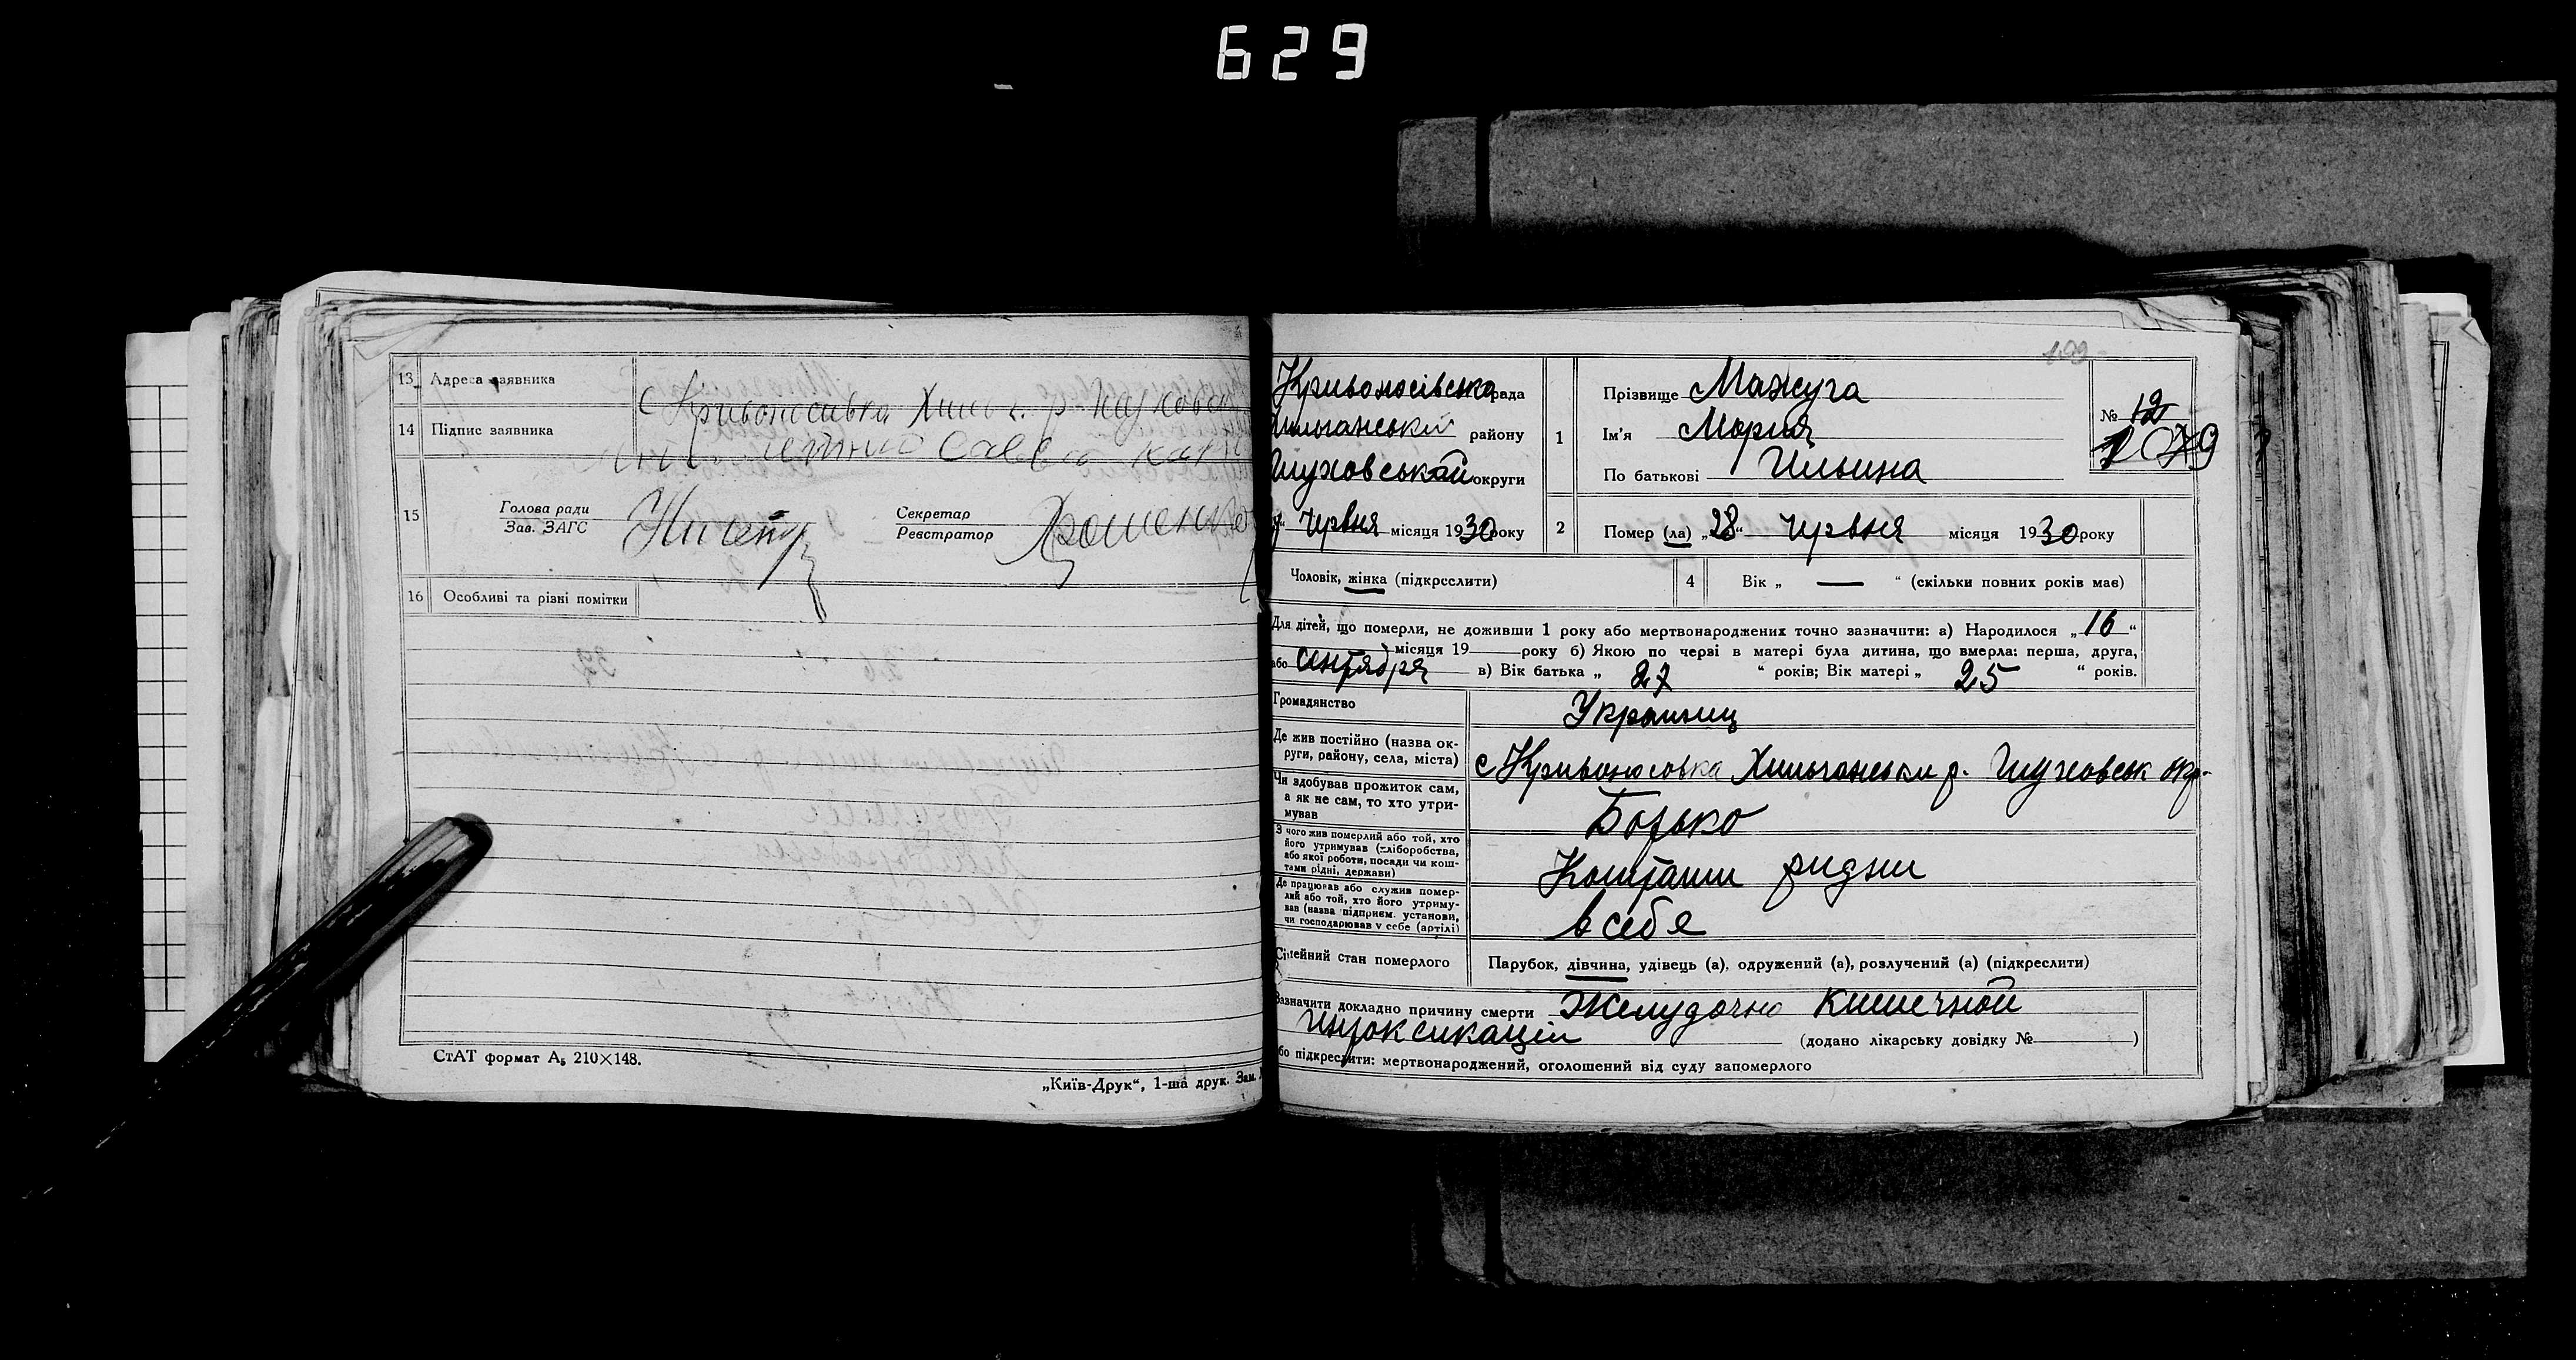 629
13 Адреса заявника
с Кривоносивка Хильч. р.
14 Підпис заявника
15 Голова ради
Зав. ЗАГС
Секретар
Реєстратор
16 Особливі та різні помітки
СтАТ формат А5 210×148.
„Київ-Друк“, 1-ша друк. Зам.
199
Кривоносівська рада
району
округи
червня місяця 1930 року
1 Прізвище Мажуга
Ім'я Мория
По батькові Ильина
№ 12
1079
2 Помер (ла) „28“ червня місяця 1930 року
Чоловік, жінка (підкреслити)
4 Вік „ — “ (скільки повних років має)
Для дітей, що померли, не доживши 1 року або мертвонароджених точно зазначити: а) Народилося „16“
сентября місяця 19 року б) Якою по черві в матері була дитина, що вмерла: перша, друга,
або в) Вік батька „ 27 “ років; Вік матері „ 25 “ років.
Громадянство
Украинец
Де жив постійно (назва ок-
руги, район, села, міста)
с Кривоносовка Хильчанськи р. Глуховськ окр.
Чи здобував прожиток сам,
а як не сам, то хто утри-
мував
Батько
З чого жив померлий або той, хто
його утримував (хліборобства,
або якої роботи, посади чи кош-
тами рідні, держави)
Коштами ридни
Де працював або служив помер-
лий або той, хто його утриму-
вав (назва підприєм. установи,
чи господарював у себе (артілі)
в себя
Сімейний стан померлого
Парубок, дівчина, удівець (а), одружений (а), розлучений (а) (підкреслити)
Зазначити докладно причину смерти Желудочно кишечной
интоксикацій (додано лікарську довідку № )
або підкреслити: мертвонароджений, оголошений від суду запомерлого